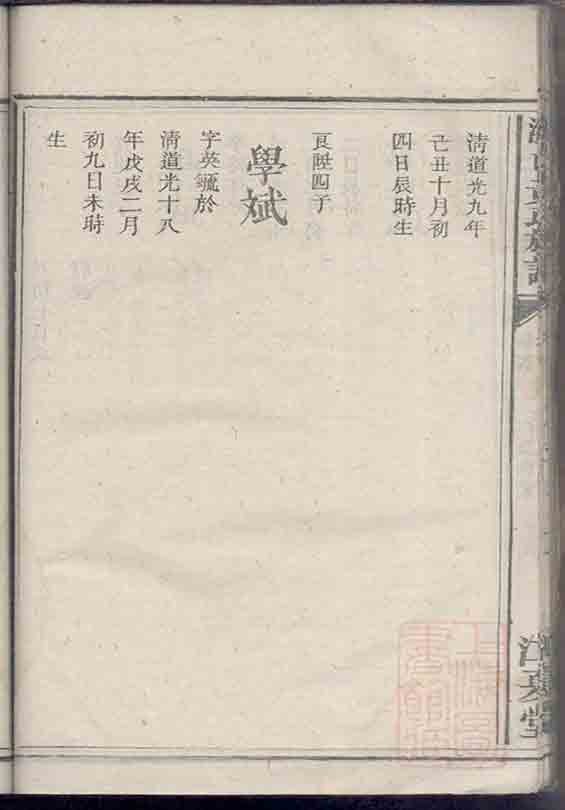 清道光九年
己丑十月初
四日辰時生
良陞四子
學斌
字英毓於
清道光十八
年戊戌二月
初九日未時
生
江夏堂